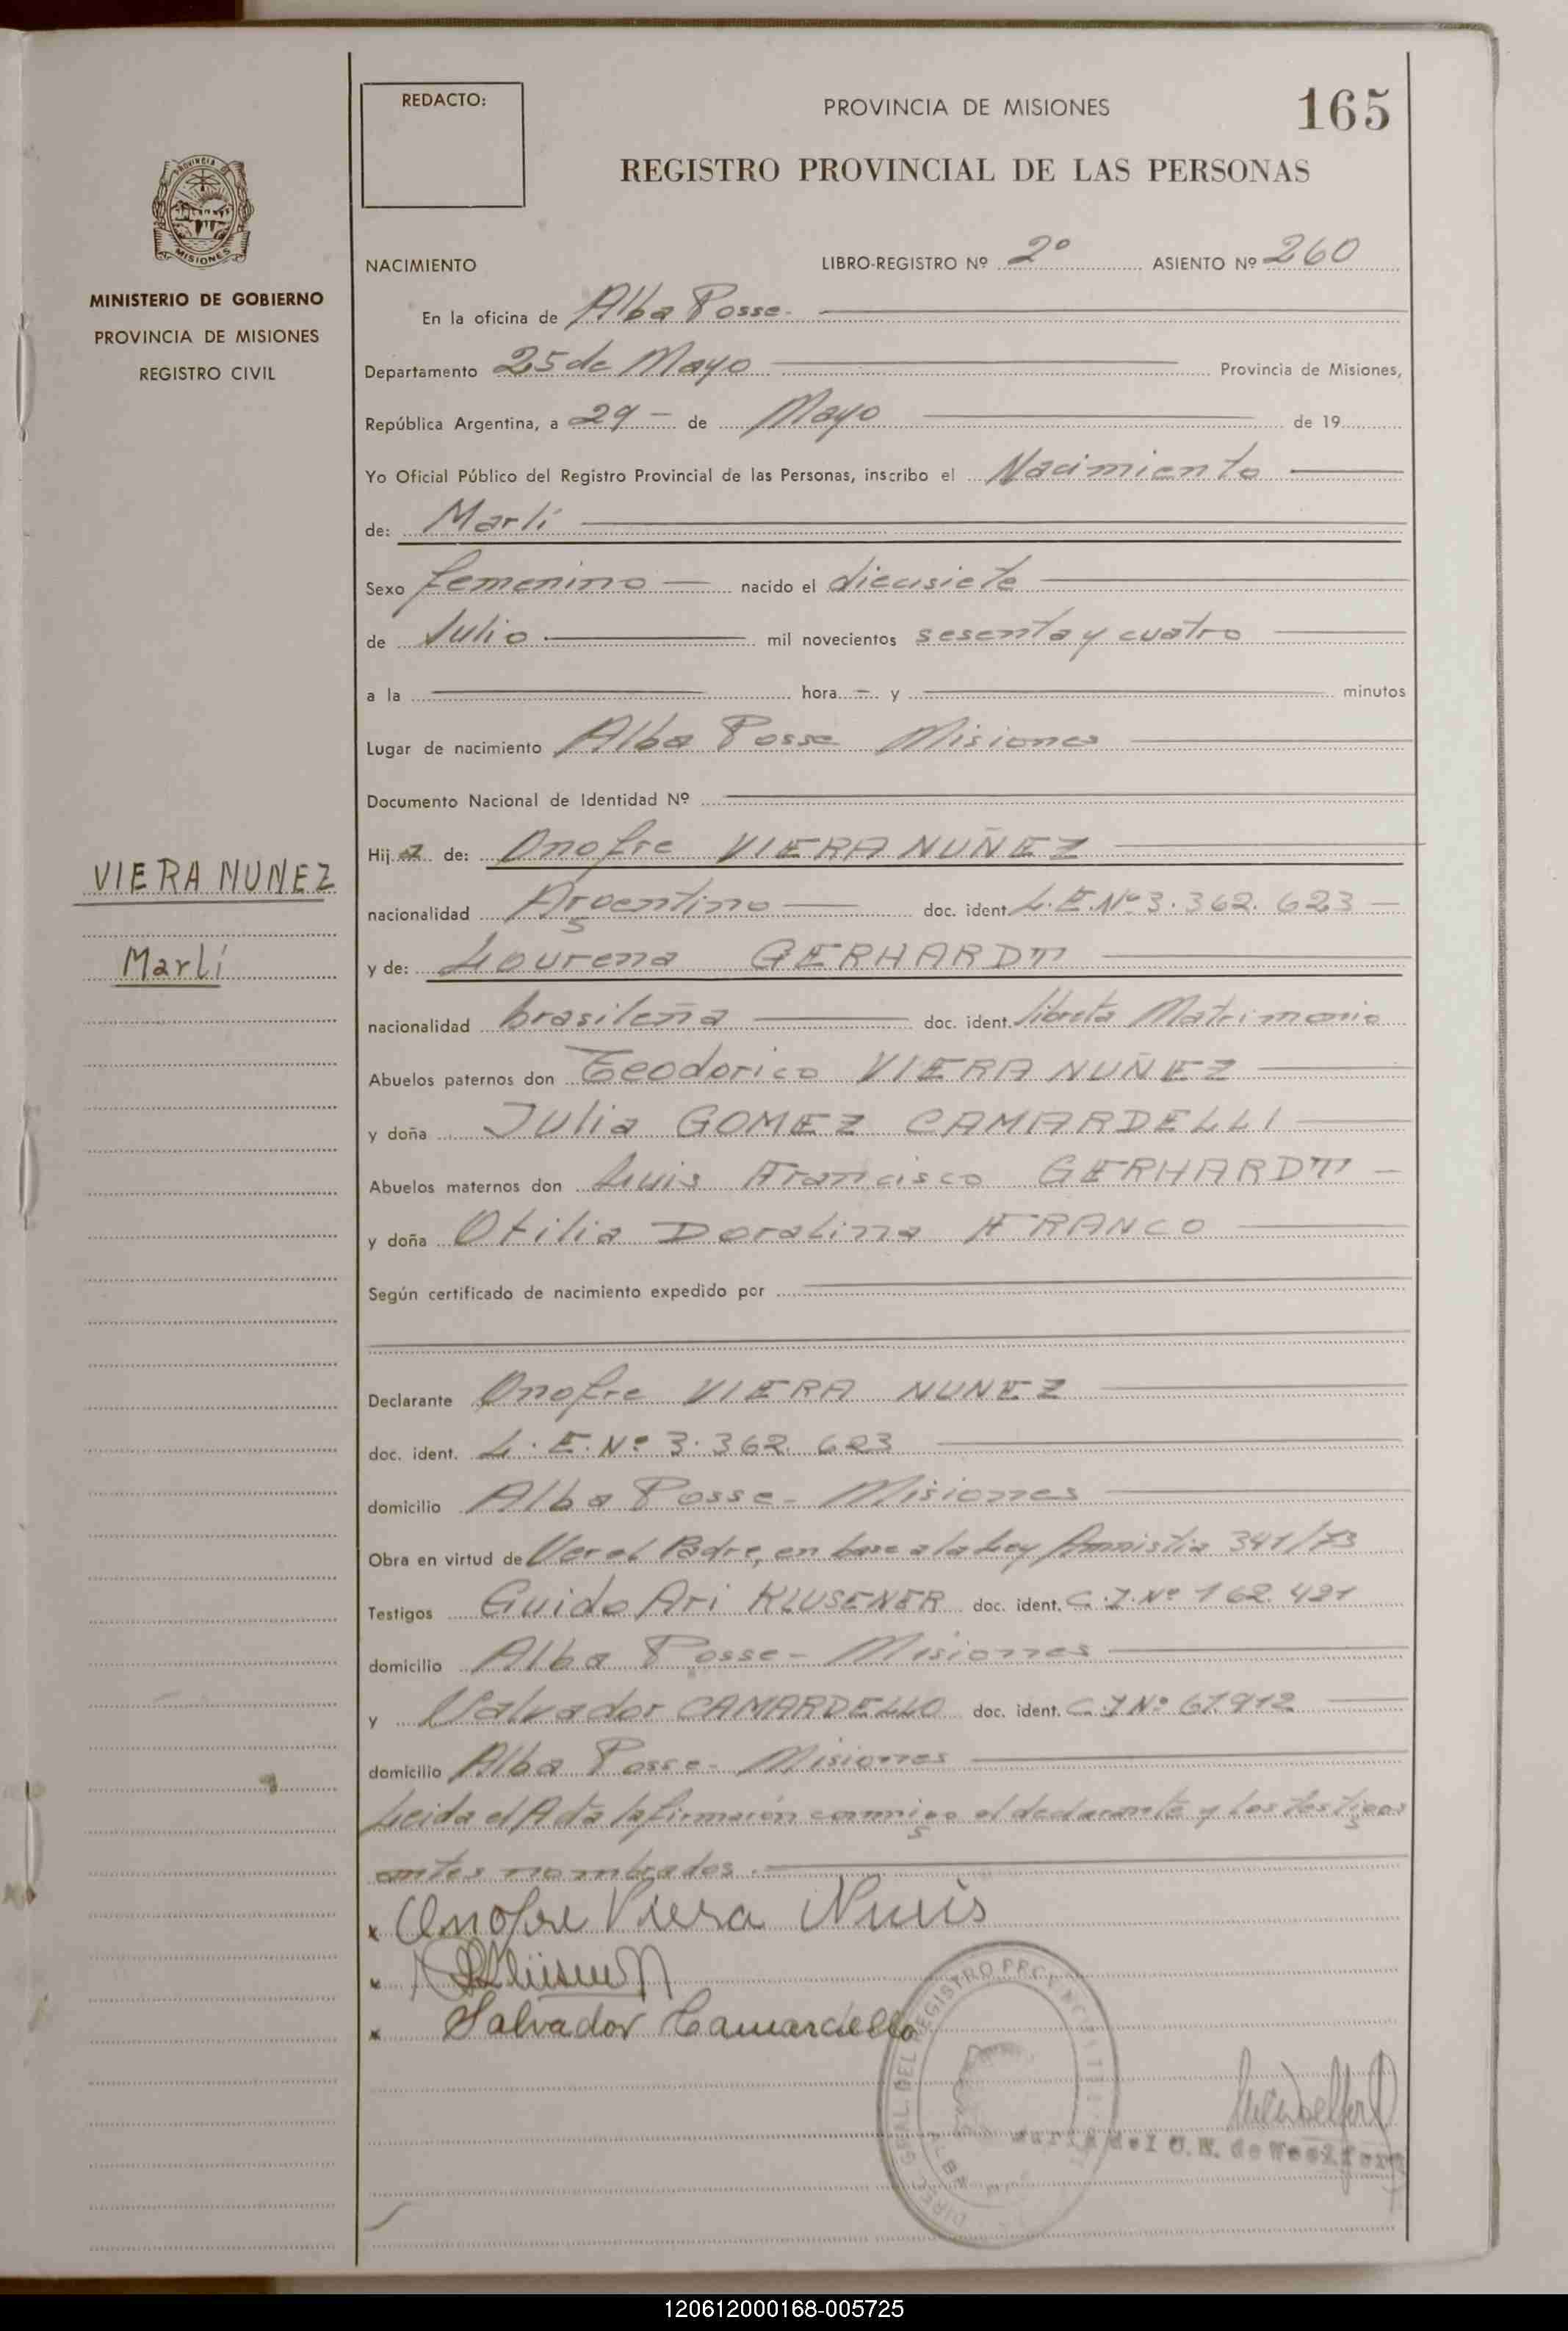 REDACTO:
PROVINCIA DE MISIONES
165
REGISTRO PROVINCIAL DE LAS PERSONAS
PROVINCIA
MISIONES
MINISTERIO DE GOBIERNO
PROVINCIA DE MISIONES
REGISTRO CIVIL
NACIMIENTO LIBRO-REGISTRO Nº 2º ASIENTO Nº 260
En la oficina de Alba Posse.
Departamento 25 de Mayo Provincia de Misiones,
República Argentina, a 29 - de Mayo de 19
Yo Oficial Público del Registro Provincial de las Personas, inscribo el Nacimiento
de: Marlí
Sexo femenino nacido el diecisiete
de Julio mil novecientos sesenta y cuatro
a la hora y minutos
Lugar de nacimiento Alba Posse Misiones
Documento Nacional de Identidad Nº
VIERA NUNEZ
Marlí
Hija de: Onofre VIERA NUÑEZ
nacionalidad Argentino doc. ident. L.E.Nº 3.362.623
y de: Lourena GERHARDTT
nacionalidad brasileña doc. ident. libreta Matrimonio
Abuelos paternos don Teodorico VIERA NUÑEZ
y doña Julia GOMEZ CAMARDELLI
Abuelos maternos don Luis Francisco GERHARDTT
y doña Otilia Doralina FRANCO
Según certificado de nacimiento expedido por
Declarante Onofre VIERA NUNEZ
doc. ident. L.E.Nº 3.362.623
domicilio Alba Posse - Misiones
Obra en virtud de Ser el Padre, en base a la Ley Amnistia 341/73
Testigos Guido Ari KLUSENER doc. ident. C.I.Nº 162.421
domicilio Alba Posse - Misiones
y Salvador CAMARDELLO doc. ident. C.I Nº 67.912
domicilio Alba Posse - Misiones
Leida el Acta la firmaron conmigo el declarante y los testigos
antes nombrados.
x Onofre Viera Nunis
x
x Salvador Camardello
DEL REGISTRO
Maria del C. R. de
120612000168-005725